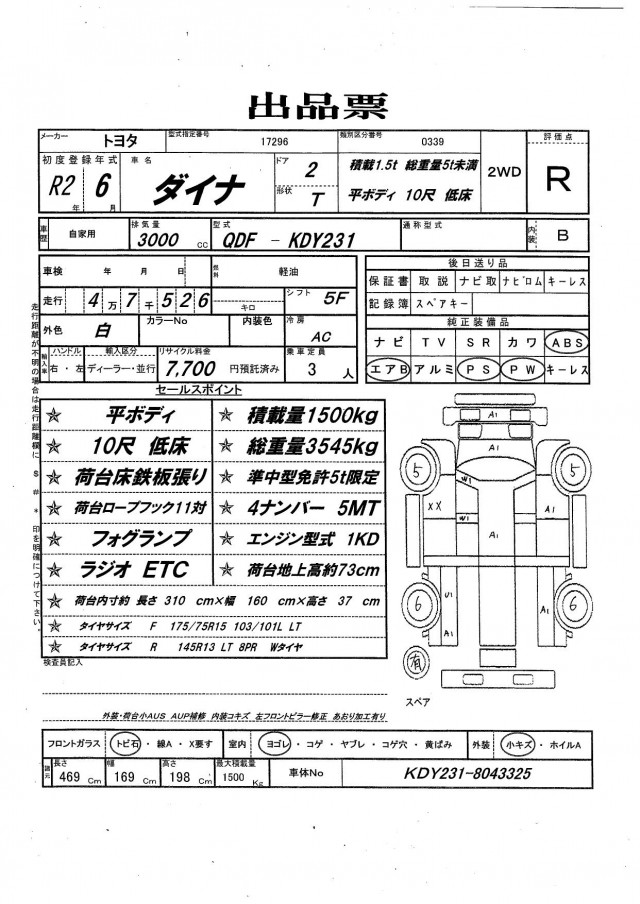 出品票
メーカー トヨタ 型式指定番号 17296 類別区分番号 0339 2WD 評価点 R
初度登録年式 R2 年 6 月 車名 ダイナ ドア 2 形状 T 積載1.5t 総重量5t未満
平ボディ 10尺 低床
車歴 自家用 排気量 3000 cc 型式 QDF - KDY231 通称型式 内装 B
車検 年 月 日 燃料 軽油
走行 4万7千526 キロ シフト 5F
外色 白 カラーNo 内装色 冷房 AC
輸入車 ハンドル 右・左 輸入区分 ディーラー・並行 リサイクル料金 7,700 円預託済み 乗車定員 3 人
後日送り品
保証書 取説 ナビ取 ナビロム キーレス
記録簿 スペアキー
純正装備品
ナビ TV SR カワ ABS
エアB アルミ PS PW キーレス
走行距離が不明の場合は走行距離欄に S # * 印を明確につけて下さい。
セールスポイント
☆ 平ボディ ☆ 積載量1500kg
☆ 10尺 低床 ☆ 総重量3545kg
☆ 荷台床鉄板張り ☆ 準中型免許5t限定
☆ 荷台ロープフック11対 ☆ 4ナンバー 5MT
☆ フォグランプ ☆ エンジン型式 1KD
☆ ラジオ ETC ☆ 荷台地上高約73cm
☆ 荷台内寸約 長さ 310 cm×幅 160 cm×高さ 37 cm
☆ タイヤサイズ F 175/75R15 103/101L LT
☆ タイヤサイズ R 145R13 LT 8PR Wタイヤ
A1
A1
5
W1
5
XX
W1
A1
A1
6
U1
A1
A1
6
有
スペア
検査員記入
外装・荷台小AUS AUP補修 内装コキズ 左フロントピラー修正 あおり加工有り
フロントガラス トビ石・線A・X要す 室内 ヨゴレ・コゲ・ヤブレ・コゲ穴・黄ばみ 外装 小キズ・ホイルA
諸元 長さ 469 Cm 幅 169 Cm 高さ 198 Cm 最大積載量 1500 Kg 車体No KDY231-8043325